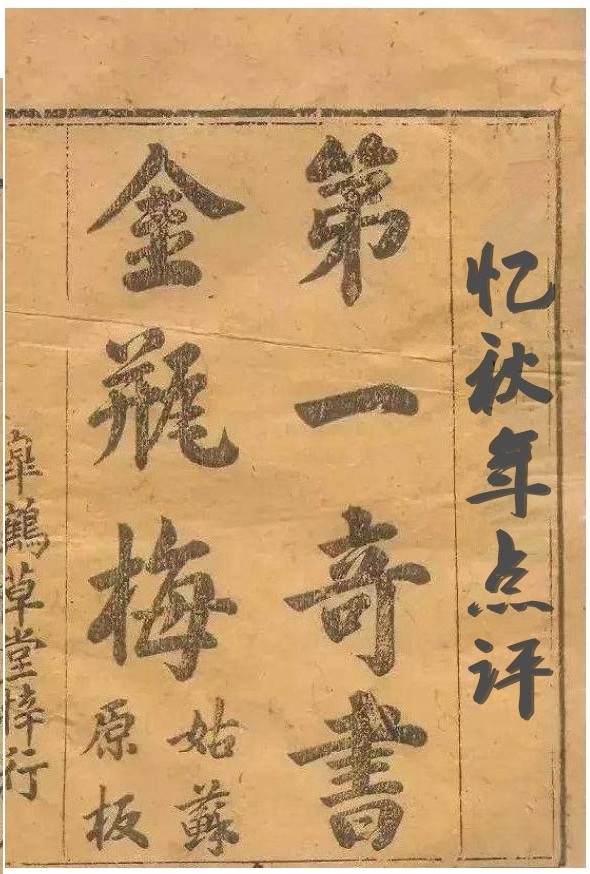 忆秋年点评
第一奇書
金瓶梅
姑蘇
原板
皐鶴草堂梓行